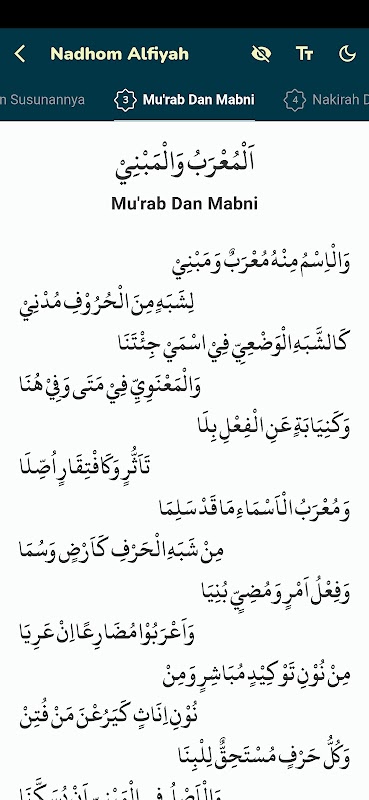 Nadhom Alfiyah
n Susunannya 3 Mu'rab Dan Mabni 4 Nakirah D
اَلْمُعْرَبُ وَالْمَبْنِيْ
Mu'rab Dan Mabni
وَالْاِسْمُ مِنْهُ مُعْرَبٌ وَمَبْنِيْ
لِشَبَهٍ مِنَ الْحُرُوْفِ مُدْنِيْ
كَالشَّبَهِ الْوَضْعِيِّ فِيْ اسْمَيْ جِئْتَنَا
وَالْمَعْنَوِيِّ فِيْ مَتَى وَفِيْ هُنَا
وَكَنِيَابَةٍ عَنِ الْفِعْلِ بِلَا
تَاَثُّرٍ وَكَافْتِقَارٍ اُصِّلَا
وَمُعْرَبُ الْاَسْمَاءِ مَا قَدْ سَلِمَا
مِنْ شَبَهِ الْحَرْفِ كَاَرْضٍ وَسُمَا
وَفِعْلُ اَمْرٍ وَمُضِيٍّ بُنِيَا
وَاَعْرَبُوْا مُضَارِعًا اِنْ عَرِيَا
مِنْ نُوْنِ تَوْكِيْدٍ مُبَاشِرٍ وَمِنْ
نُوْنِ اِنَاثٍ كَيَرُعْنَ مَنْ فُتِنْ
وَكُلُّ حَرْفٍ مُسْتَحِقٌّ لِلْبِنَا